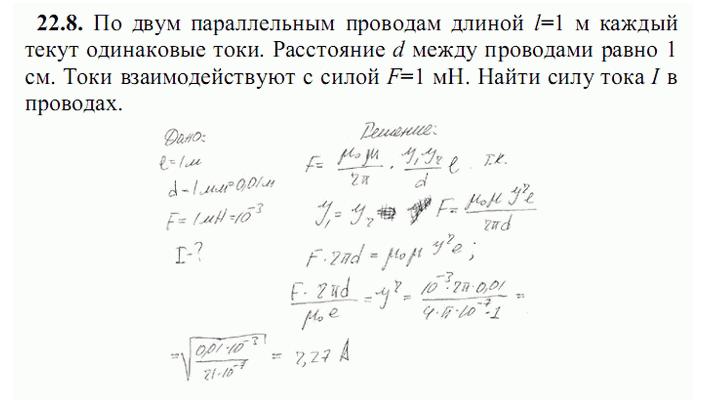 22.8. По двум параллельным проводам длиной l=1 м каждый
текут одинаковые токи. Расстояние d между проводами равно 1
см. Токи взаимодействуют с силой F=1 мН. Найти силу тока I в
проводах.
Дано: Решение:
l=1м F= μ₀μ/2π · y₁y₂/d l . т.к.
d=1мм=0,01м
F=1мН=10⁻³ y₁=y₂ F= μ₀μ y²l/2πd
I-? F·2πd = μ₀μ y²l ;
F·2πd/μ₀l = y² = 10⁻³·2π·0,01/4·π·10⁻⁷·1 =
=√(0,01·10⁻³/21·10⁻⁷) = 2,27 А